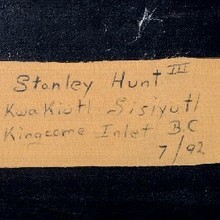 Stanley Hunt III
Kwakiutl Sisiyutl
Kingcome Inlet B.C
7/92